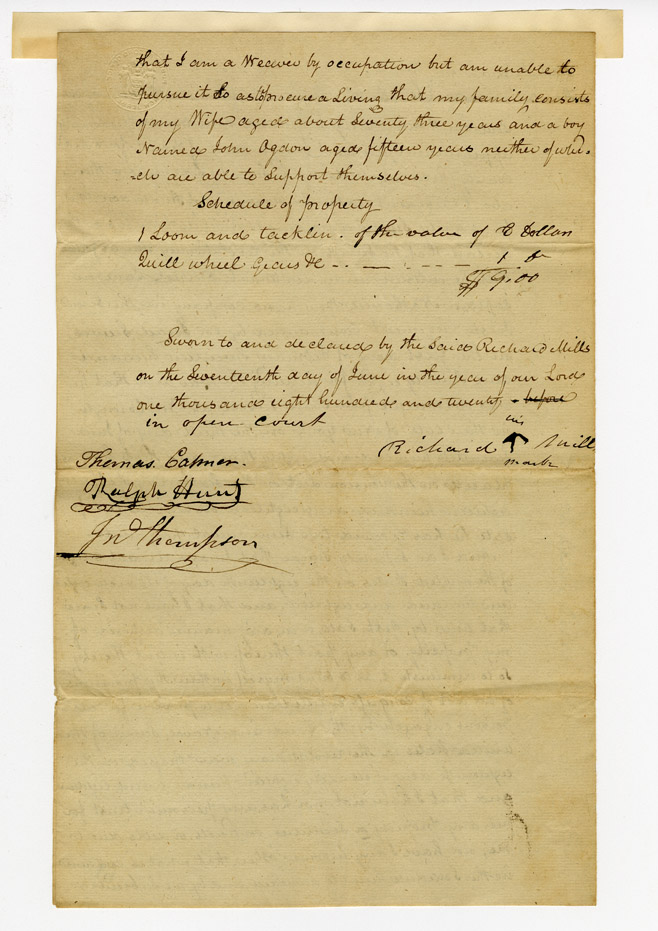 that I am a Weaver by occupation but am unable to
pursue it so as to procure a Living that my family consists
of my Wife aged about Seventy three years and a boy
Named John Ogdon aged fifteen years neither of whi-
-ch are able to Support themselves.
Schedule of property
1 Loom and tacklin. of the value of 8 Dollars
Quill wheel Gears &c - - - - - - 1 do
$9.00
Sworn to and declared by the Said Richard Mills
on the Seventeenth day of June in the year of our Lord
one thousand eight hundred and twenty - before
in open court
his
Richard Mills
mark
Thomas
Ralph Hunt
Jno Thompson